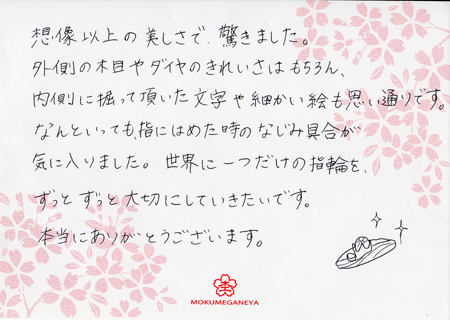 想像以上の美しさで、驚きました。
外側の木目やダイヤのきれいさはもちろん、
内側に掘って頂いた文字や細かい絵も思い通りです。
なんといっても、指にはめた時のなじみ具合が
気に入りました。世界に一つだけの指輪を、
ずっとずっと大切にしていきたいです。
本当にありがとうございます。
木
MOKUMEGANEYA